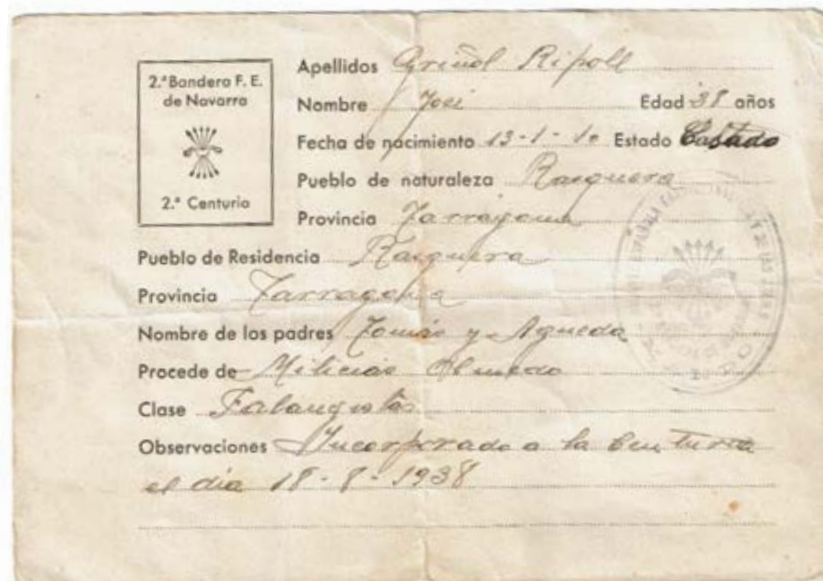 2.ª Bandera F. E.
de Navarra
2.ª Centuria
Apellidos Griñol Ripoll
Nombre José Edad 38 años
Fecha de nacimiento 13-1-10 Estado Casado
Pueblo de naturaleza Rasquera
Provincia Tarragona
Pueblo de Residencia Rasquera
Provincia Tarragona
Nombre de los padres Tomás y Agueda
Procede de Milicias Olmedo
Clase Falangista
Observaciones Incorporado a la Centuria
el dia 18-8-1938